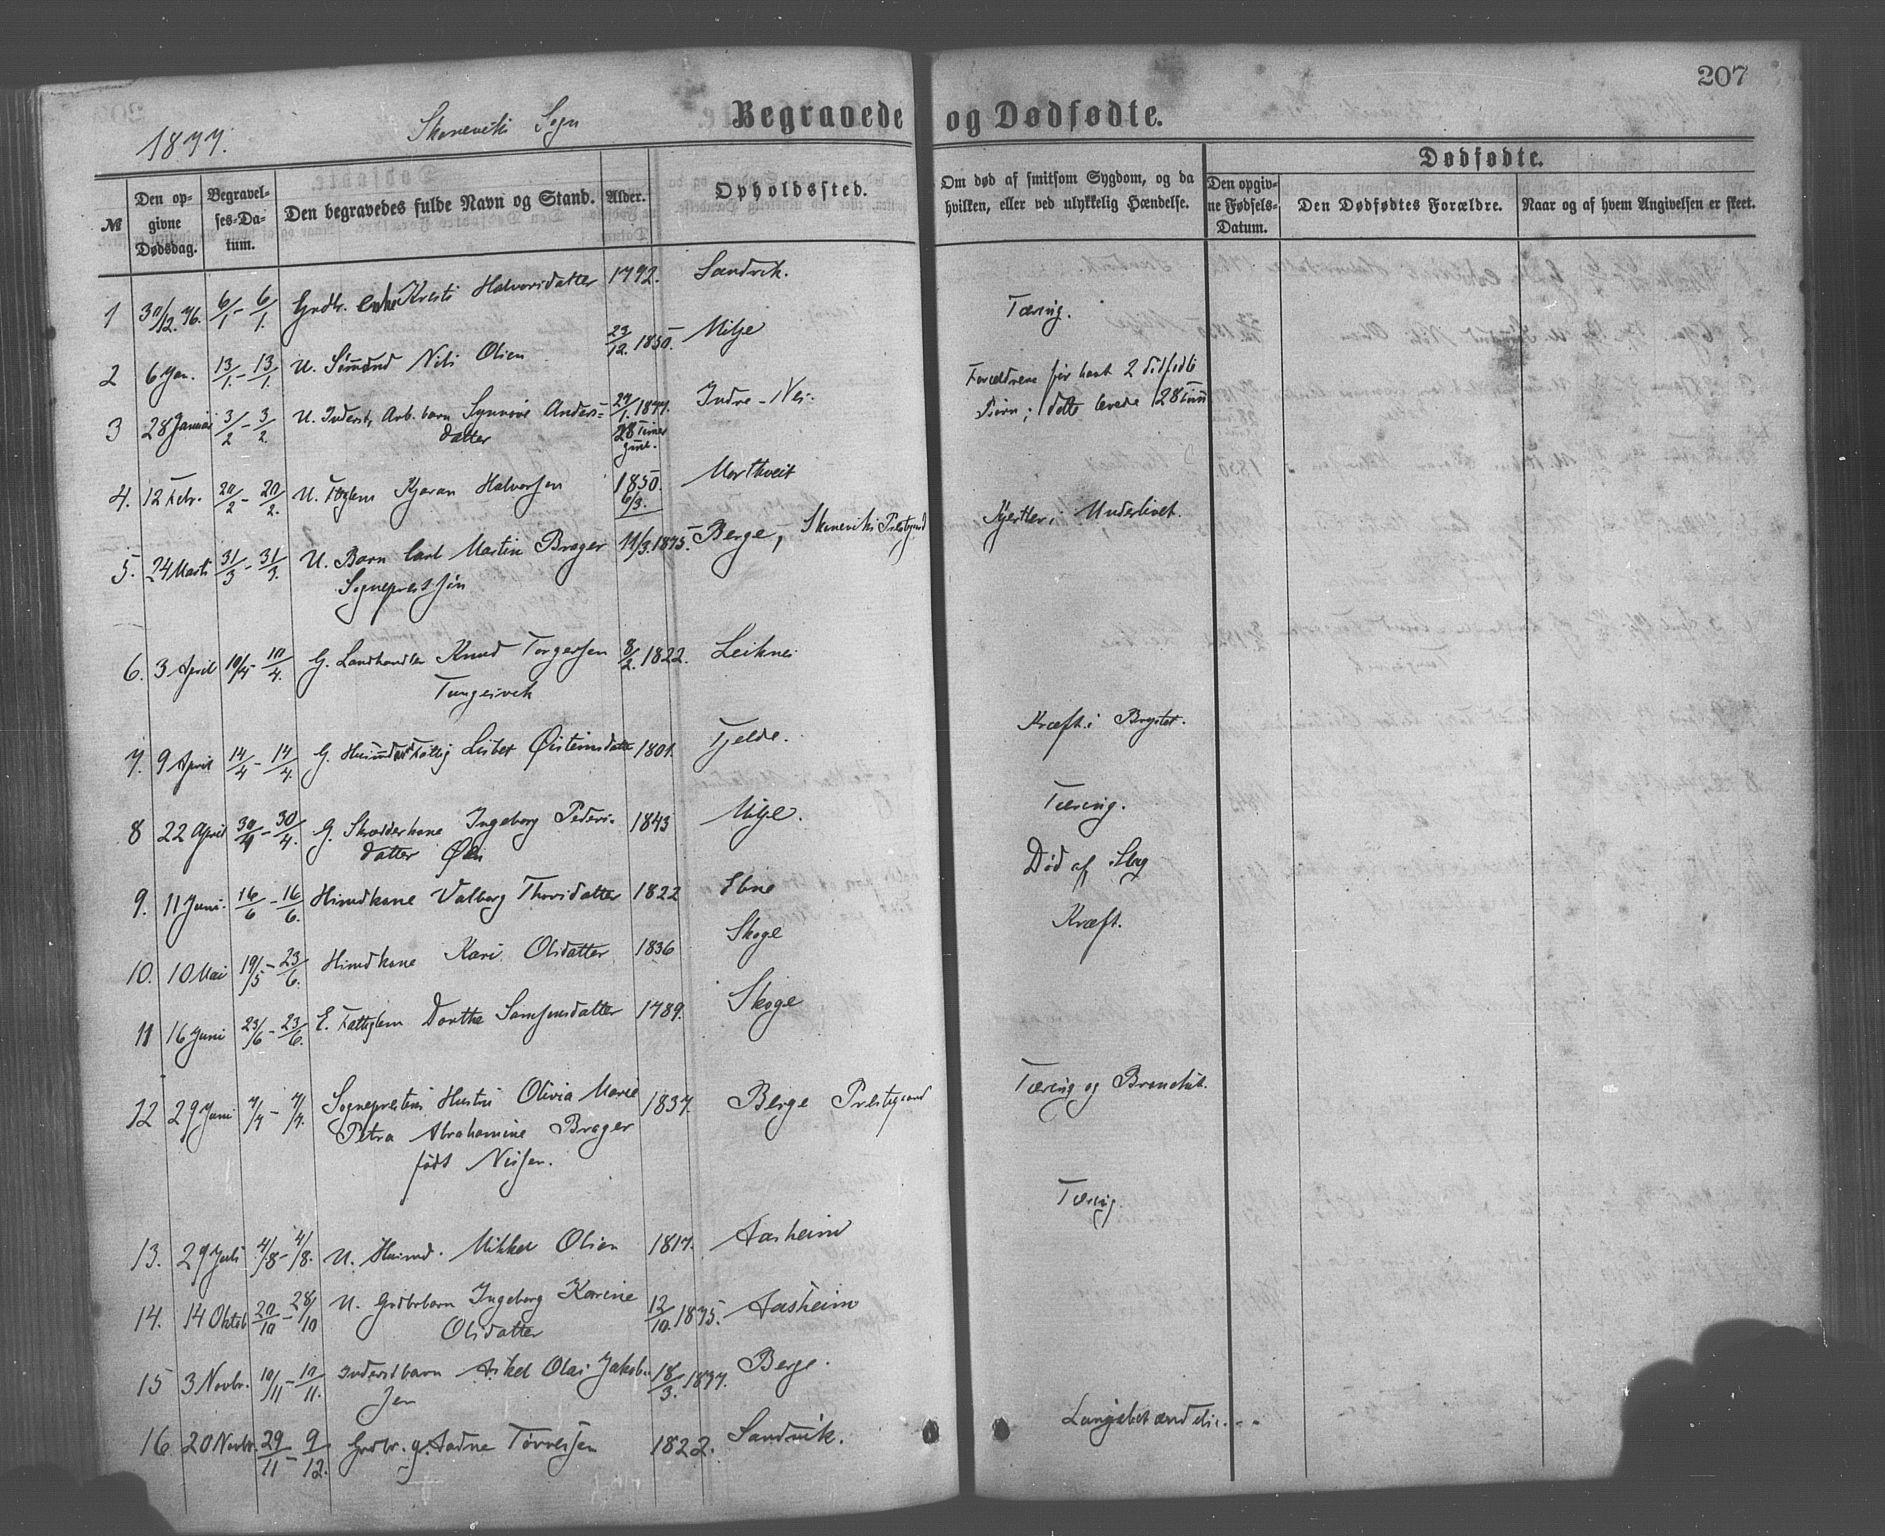 207
1877.
Skoneviks Sogn
Begravede og Dødfødte.
Dødfødte.
№
Den opgivne Dødsdag.
Begravelses-Datum.
Den begravedes fulde Navn og Stand.
Alder.
Opholdssted.
Om død af smitsom Sygdom, og da hvilken, eller ved ulykkelig Hændelse.
Den opgivne Fødsels-Datum.
Den Dødfødtes Forældre.
Naar og af hvem Angivelsen er skeet.
1 30/12. 76. 6/1 - 6/1. Grdbr. enke Kresti Halvorsdatter 1792. Sandvik.
Tæring.
2 6 Jan. 13/1. - 13/1. U. Nils Olsen 23/12. 1850. Milje
3 28 Januar 3/2 - 3/2. U. Inderst, Arb. barn Synnøve Anders- 27/1. 1877. Indre-Nes. Forældrene før havt 2 dødfødte
datter 28 Timer Børn; dette levede 28 Timer
gml.
4. 12 Febr. 20/2 - 20/2. U. Kjøran Halvorsen 1850. 6/3. Morthveit
Kjertler i Underlivet.
5. 24 Marts 31/3 - 31/3. U. Barn Carl Martin Brager 11/3. 1875. Berge, Skoneviks Prestgaard
Sogneprest søn
6. 3 April 10/4 - 10/4. G. Landhandler Knud Torgersen 8/2. 1822. Leiknes
Tungesvik
Kræft i Brystet.
7. 9 April 14/4 - 14/4. G. Lisbet Øisteinsdatter 1801. Tjelde.
Tæring.
8 22 April 30/4 - 30/4. G. Skrædderkone Ingeborg Peders- 1843 Milje.
datter
Død af Slag
9. 11 Juni. 16/6 - 16/6. Husmdkone Valborg Thorsdatter 1822 Ebne
Kræft.
10. 10 Mai 19/5 - 23/6. Husmdkone Kari Olsdatter 1836 Skoge
11 16 Juni 23/6 - 23/6. E. Fattiglem Dorthe Samsonsdatter 1789. Skoge
12 29 Juni 7/7 - 7/7. Sogneprestens Hustru Olivia Marie 1837. Berge Prestegaard Tæring og Bronchit.
Petra Abrahamine Brager
født Nissen.
Tæring.
13. 29 Juli 4/8 - 4/8. U. Husmd. Mikkel Olsen 1817. Aasheim
14. 14 Oktob 20/10 - 28/10 U. Grdbrbarn Ingeborg Karine 12/10. 1875. Aasheim
Olsdatter
15 3 Novbr. 10/11 - 10/11. Inderstbarn Askel Olai Jakob- 18/3. 1877. Berge.
sen
Lungebetændelse.
16 20 Novbr. 29/11 - 9/12. Grdbr. g. Aadne Torvesen 1822. Sandvik.